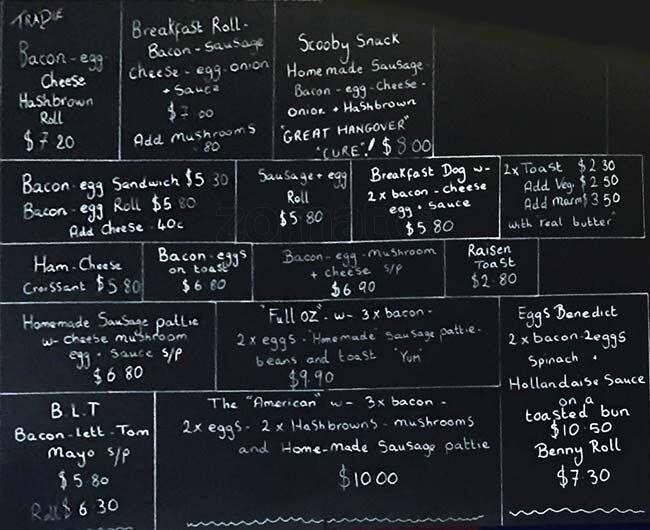 TRADIE
Bacon-egg-
Cheese
Hashbrown
Roll
$7 20
Breakfast Roll-
Bacon-Sausage
cheese-egg-onion
+ Sauce
$7 00
Add Mushrooms
80
Scooby Snack
Homemade Sausage-
Bacon-egg-cheese-
onion + Hashbrown
"GREAT HANGOVER"
"CURE"! $8 00
Bacon-egg Sandwich $5 30
Bacon-egg Roll $5 80
Add Cheese 40c
Sausage + egg
Roll
$5.80
Breakfast Dog w-
2x bacon-cheese
egg + sauce
$5 80
2x Toast $2 30
Add Veg. $2 50
Add Marm $3 50
with "real butter"
Ham-Cheese
Croissant $5 80
Bacon-eggs
on toast
$6 80
Bacon-egg-mushroom
+ cheese s/p
$6 90
Raisen
Toast
$2.80
Homemade Sausage pattie
w- cheese mushroom
egg + sauce s/p
$6 80
"Full oz" -w- 3x bacon-
2x eggs-"Homemade" Sausage pattie-
beans and toast "Yum"
$9.90
Eggs Benedict
2x bacon-2eggs
Spinach +
Hollandaise Sauce
on a
toasted bun
$10 50
Benny Roll
$7.30
B.L.T
Bacon-lett-Tom
Mayo s/p
$5 80
Roll $6 30
The "American" w- 3x bacon-
2x eggs- 2x Hashbrowns-mushrooms
and Home-made Sausage pattie
$10 00
zomato